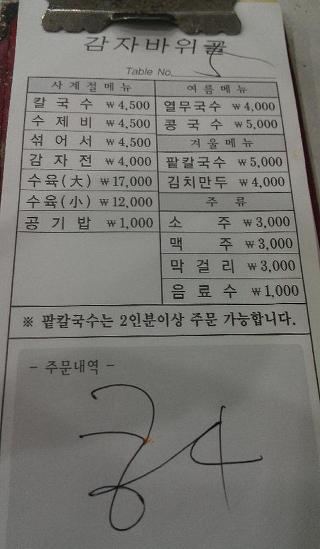 감자바위골
Table No.
사계절메뉴
칼국수 ₩4,500
수제비 ₩4,500
섞어서 ₩4,500
감자전 ₩4,000
수육(大) ₩17,000
수육(小) ₩12,000
공기밥 ₩1,000
여름메뉴
열무국수 ₩4,000
콩국수 ₩5,000
겨울메뉴
팥칼국수 ₩5,000
김치만두 ₩4,000
주류
소주 ₩3,000
맥주 ₩3,000
막걸리 ₩3,000
음료수 ₩1,000
※ 팥칼국수는 2인분이상 주문 가능합니다.
- 주문내역 -
콩4